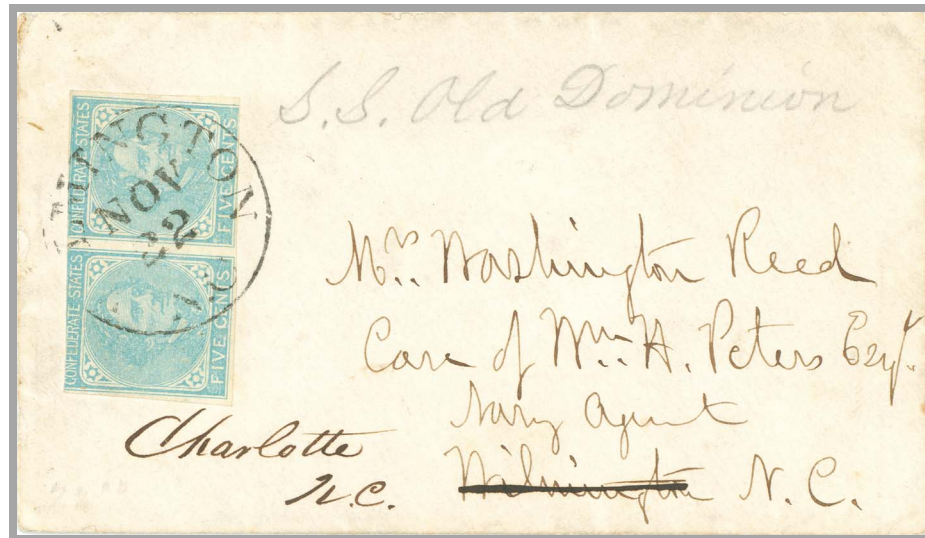 S.S. Old Dominion
CONFEDERATE STATES
FIVE CENTS
CONFEDERATE STATES
FIVE CENTS
MINGTON
NOV
22
Mrs. Washington Reed
Care of Wm. H. Peters Esqr.
Navy Agent
Wilmington N.C.
Charlotte
N.C.